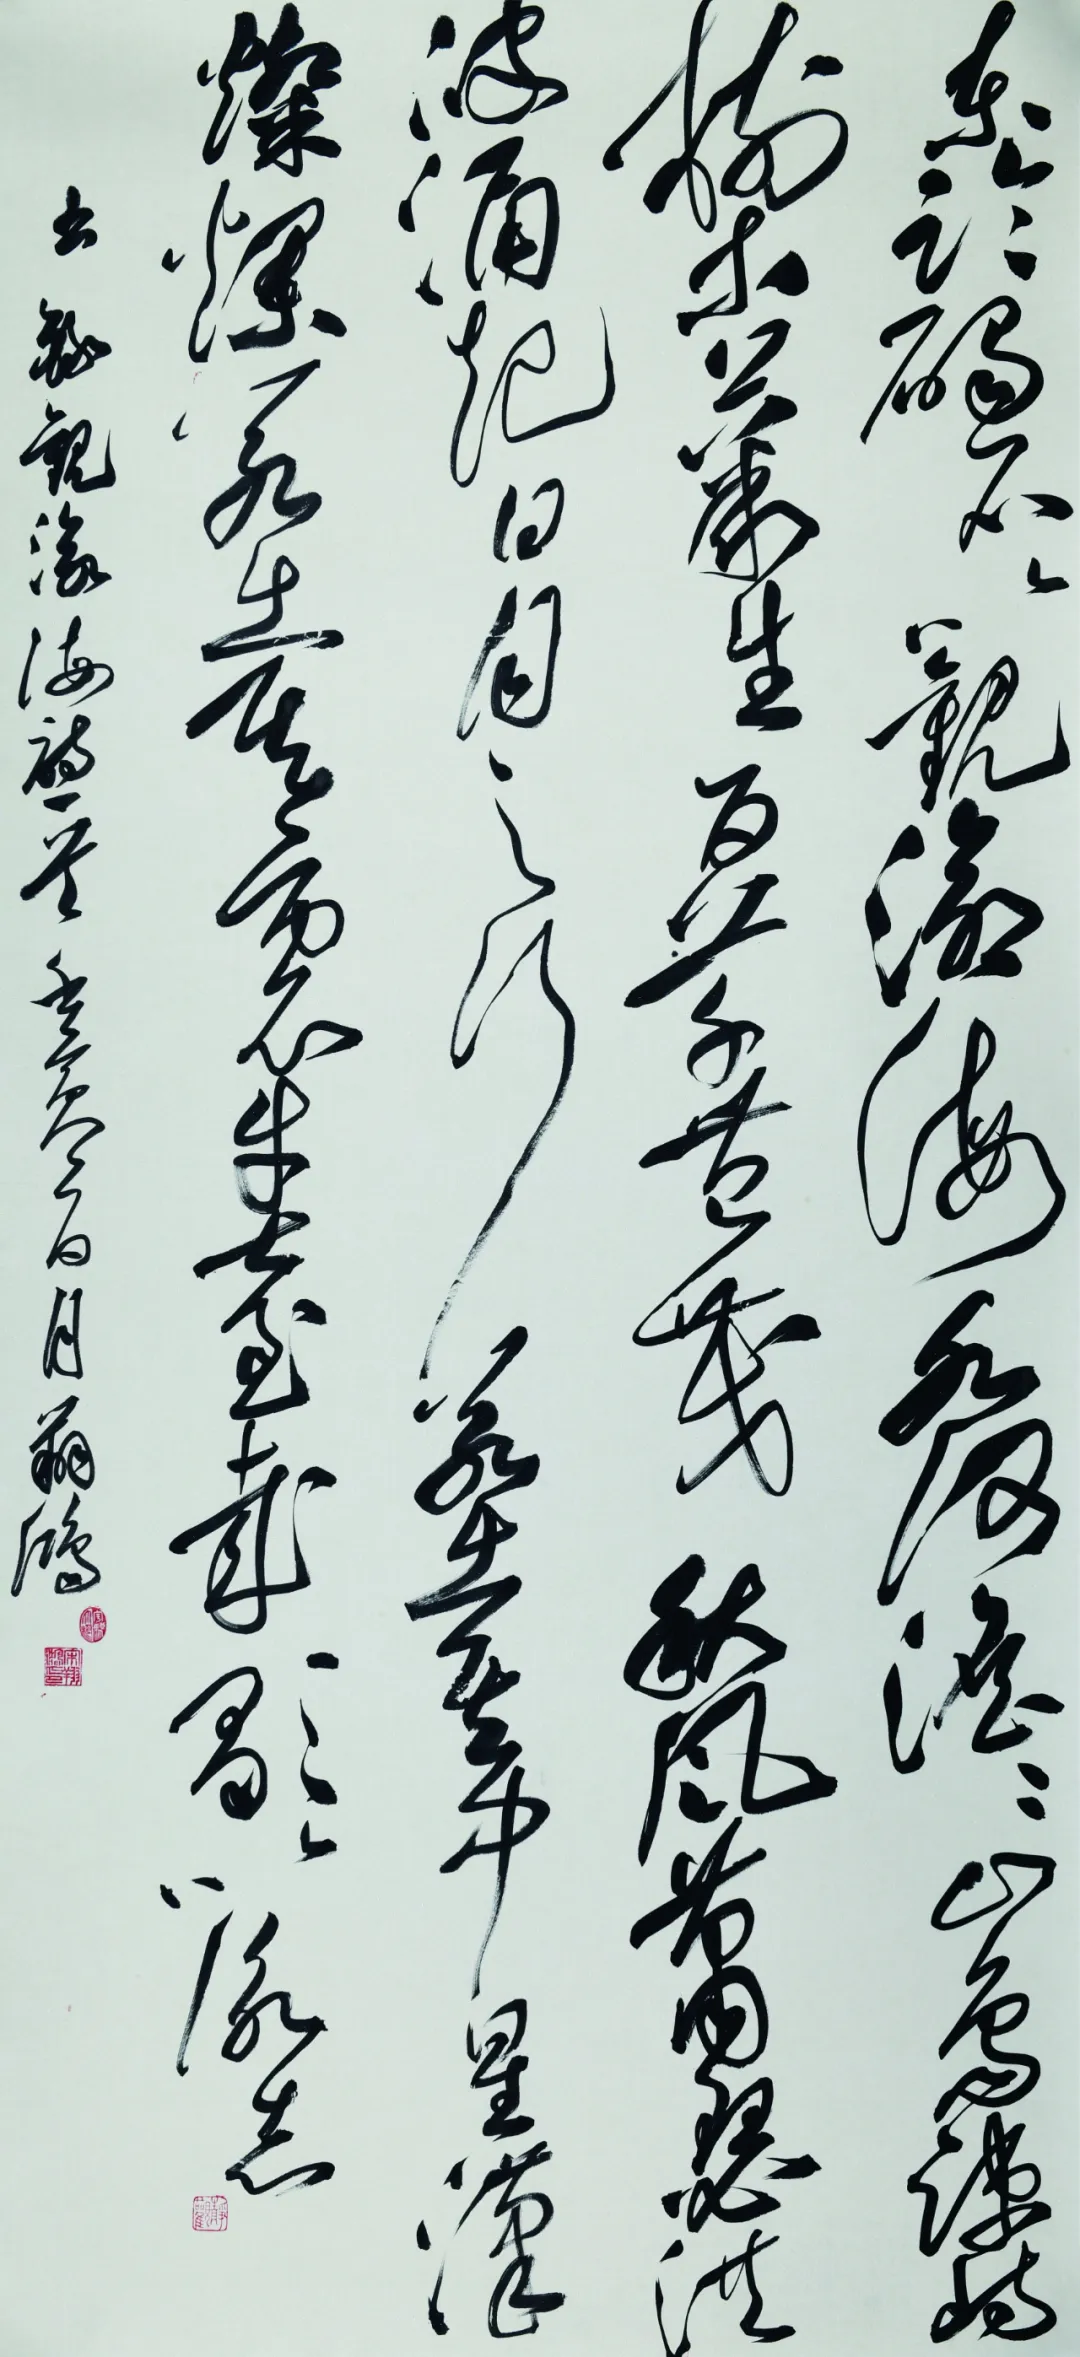 東臨碣石以觀滄海水何澹澹山島竦峙
樹木叢生百草豐茂秋風蕭瑟洪
波涌起日月之行若出其中星漢
燦爛若出其裏幸甚至哉歌以詠志
觀滄海詩一首壬寅月翔鴻